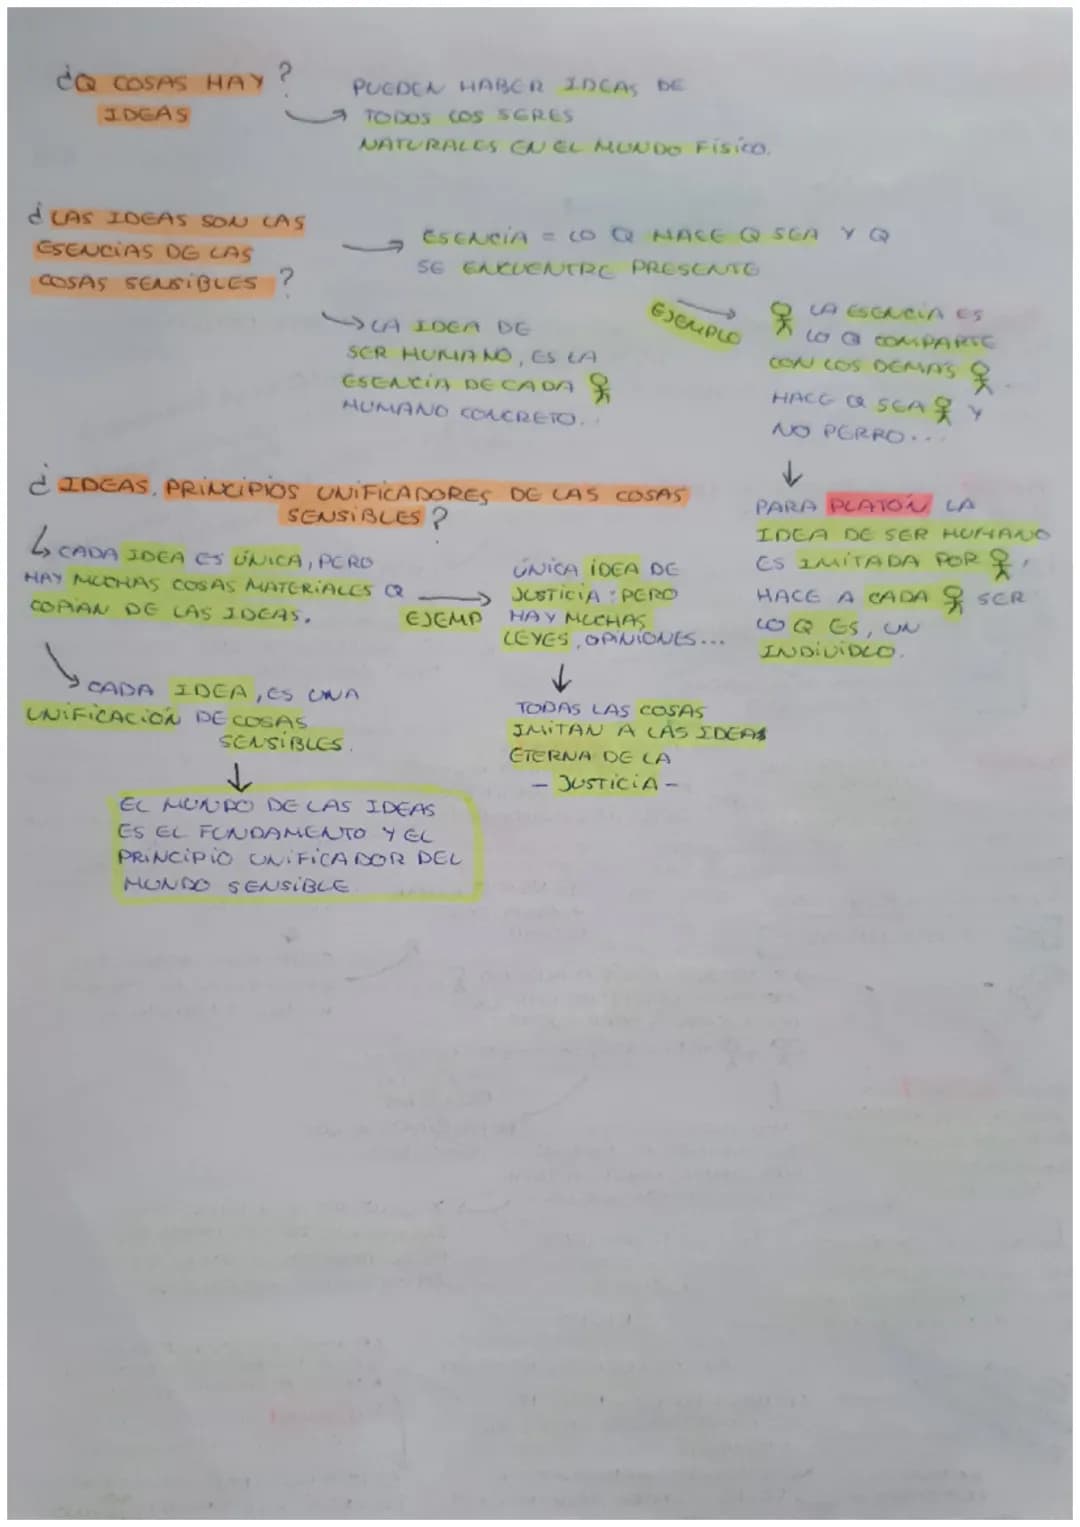 ¿Q COSAS HAY ?
IDEAS
PUEDEN HABER IDEAS DE
TODOS LOS SERES
NATURALES EN EL MUNDO FÍSICO.
¿LAS IDEAS SON LAS
ESENCIAS DE LAS
COSAS SENSIBLES ?
ESENCIA = LO Q HACE Q SEA Y Q
SE ENCUENTRE PRESENTE
LA IDEA DE
SER HUMANO, ES LA
ESENCIA DE CADA
HUMANO CONCRETO...
EJEMPLO
LA ESENCIA ES
LO Q COMPARTE
CON LOS DEMÁS
HACE Q SEA Y
NO PERRO...
PARA PLATÓN LA
IDEA DE SER HUMANO
ES IMITADA POR ,
HACE A CADA SER
LO Q ES, UN
INDIVIDUO.
¿ IDEAS, PRINCIPIOS UNIFICADORES DE LAS COSAS
SENSIBLES ?
CADA IDEA ES ÚNICA, PERO
HAY MUCHAS COSAS MATERIALES Q
COPIAN DE LAS IDEAS.
EJEMP
ÚNICA IDEA DE
JUSTICIA : PERO
HAY MUCHAS
LEYES, OPINIONES...
TODAS LAS COSAS
IMITAN A LAS IDEAS
ETERNA DE LA
- JUSTICIA -
CADA IDEA, ES UNA
UNIFICACIÓN DE COSAS
SENSIBLES.
EL MUNDO DE LAS IDEAS
ES EL FUNDAMENTO Y EL
PRINCIPIO UNIFICADOR DEL
MUNDO SENSIBLE